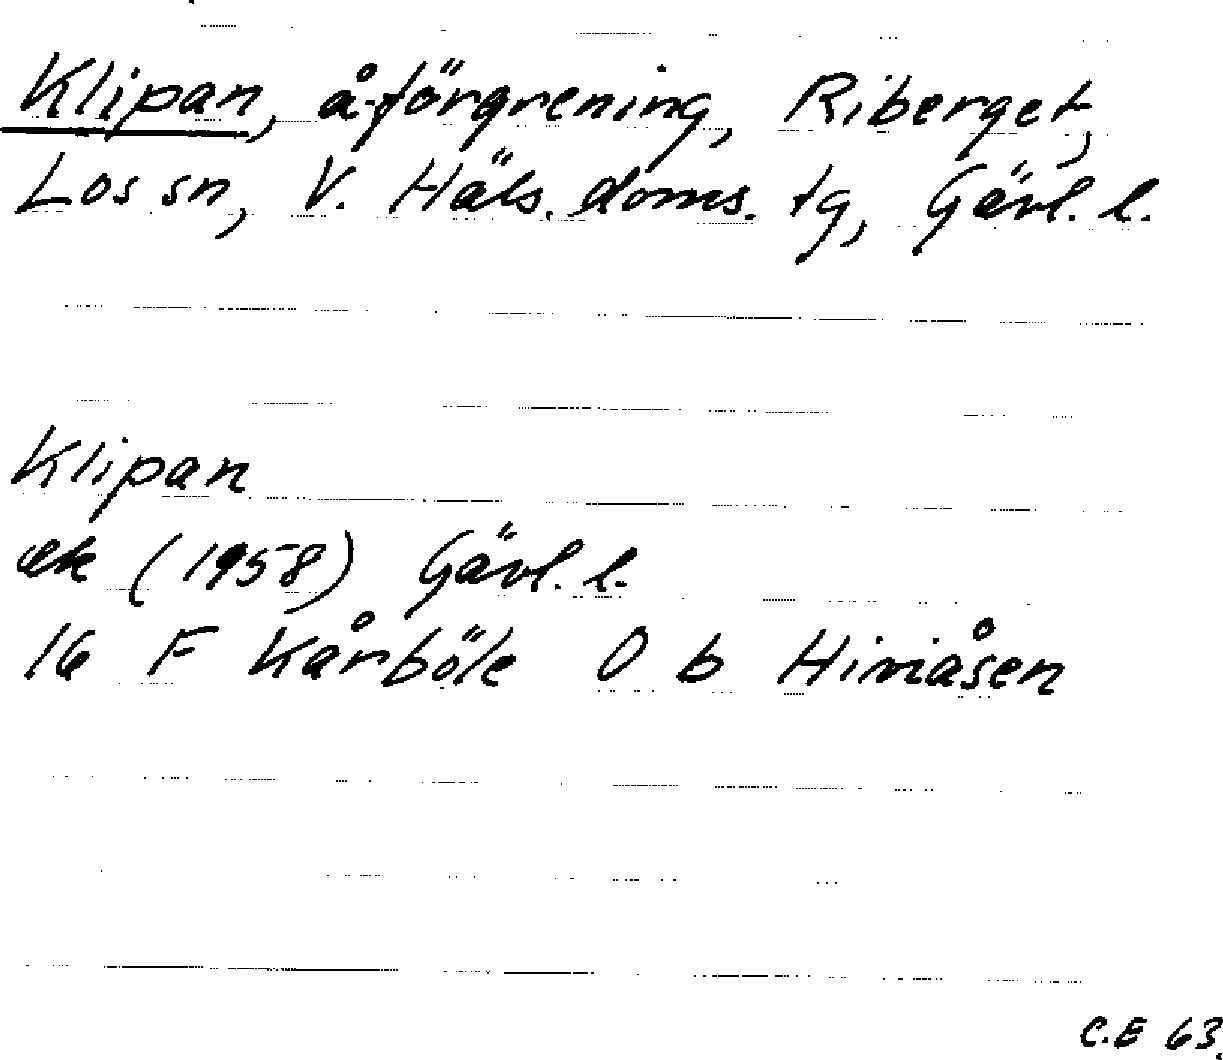 Klipan, å-förgrening, Riberget,
Los sn, V. Häls. doms. tg, Gävl. l.
Klipan
ek (1958) Gävl. l.
16 F Kårböle O b Himåsen
C.E 63.